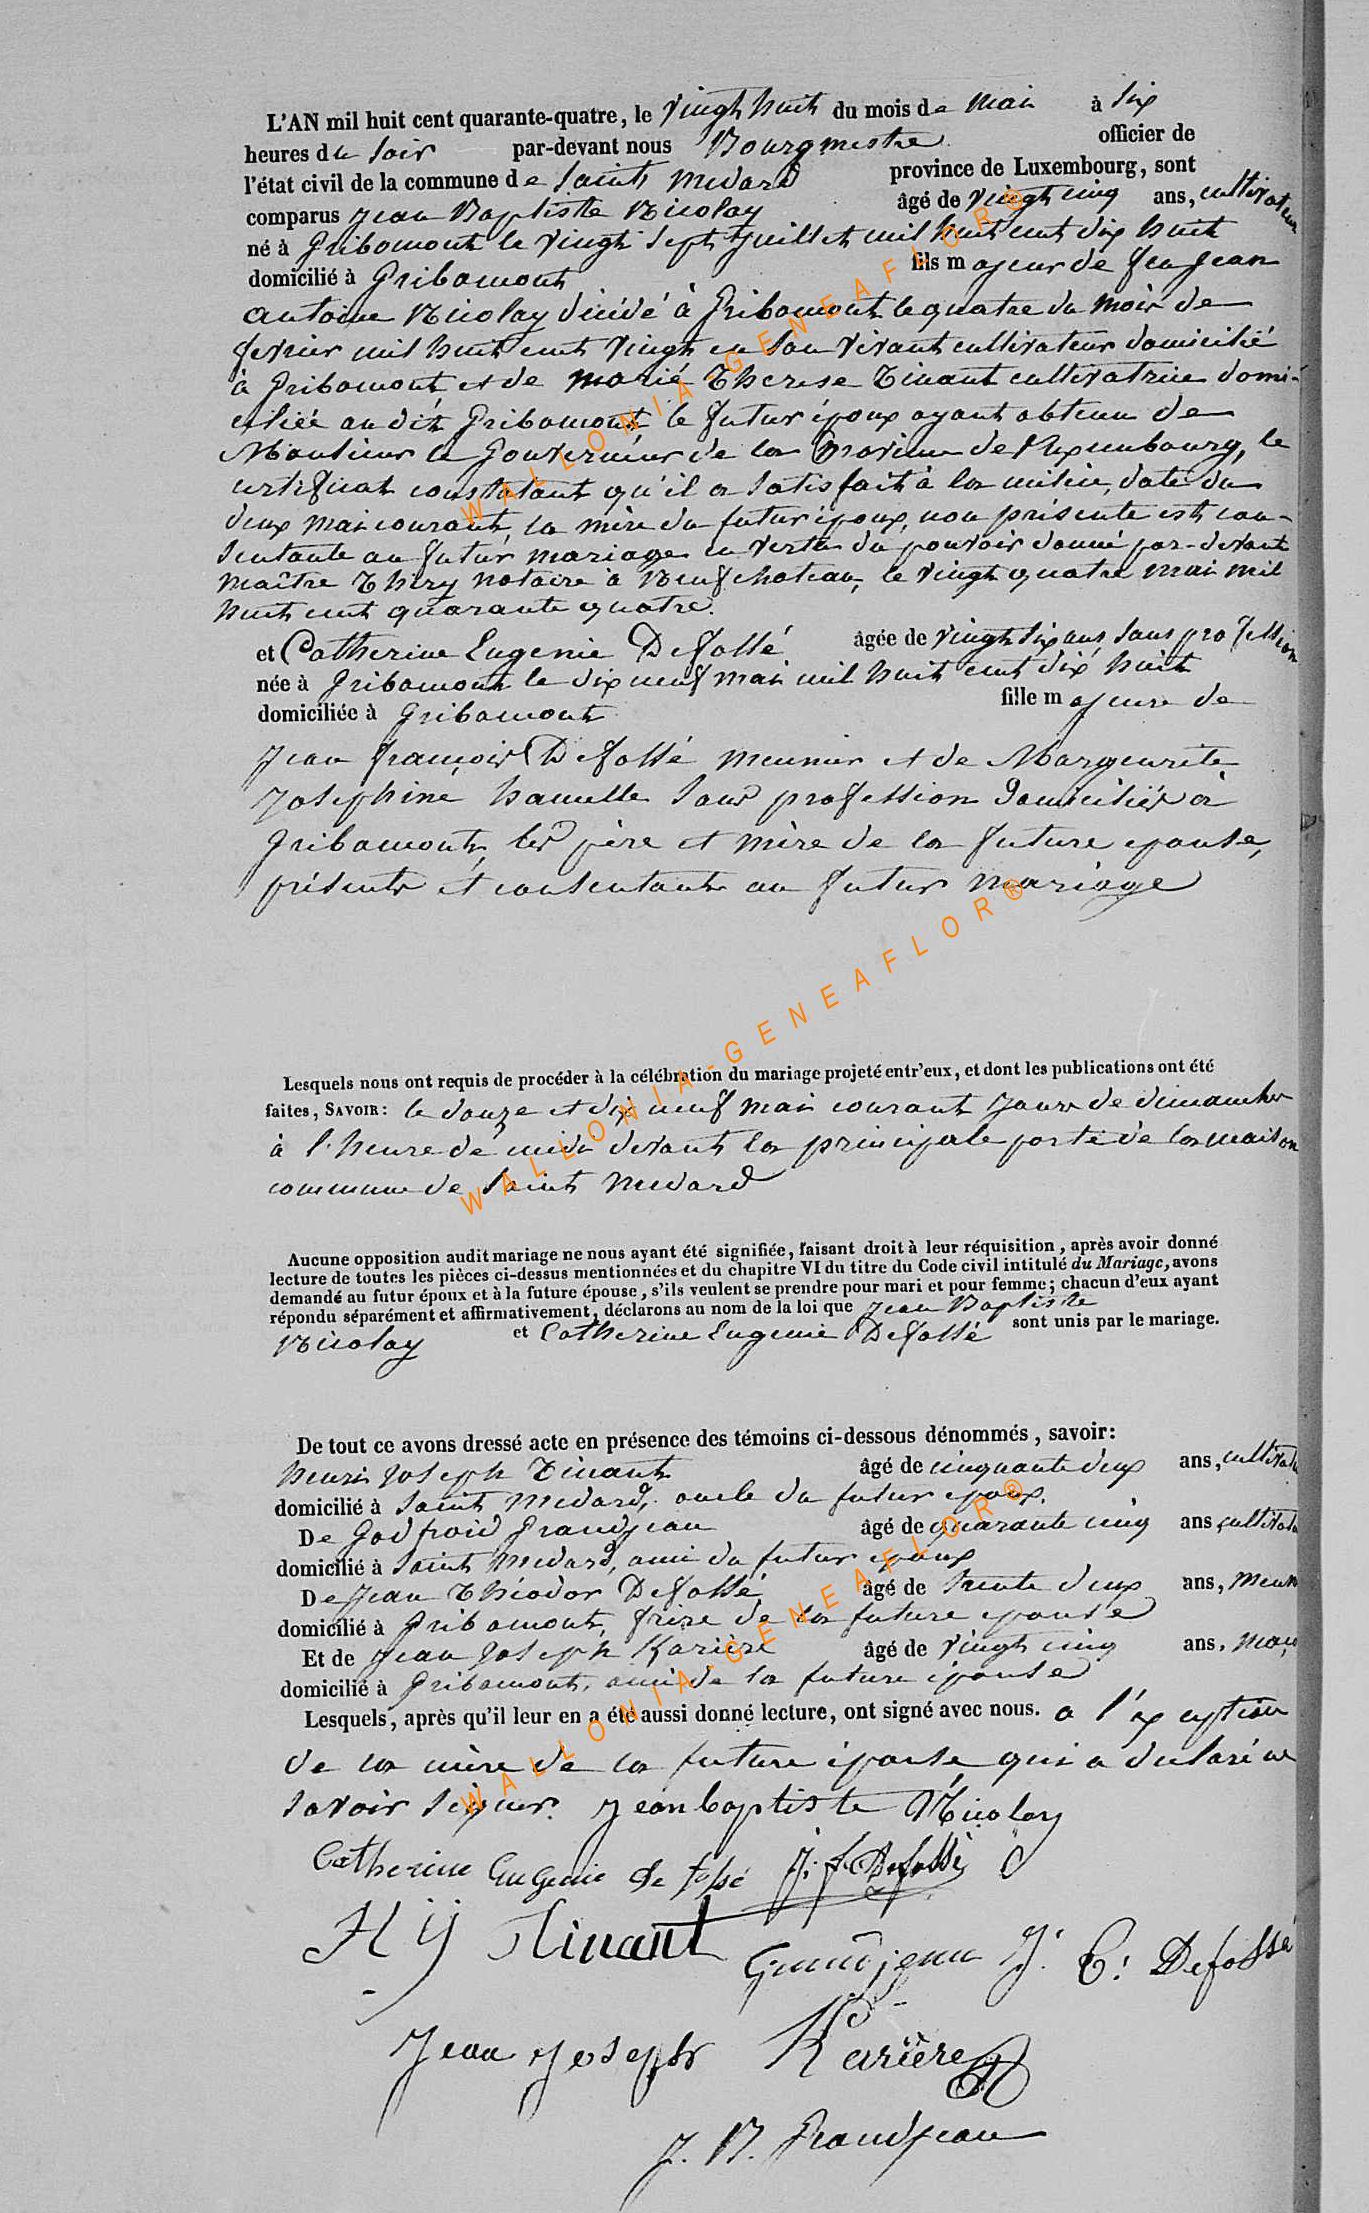 L'AN mil huit cent quarante-quatre, le vingt huit du mois de mai à six
heures du soir par-devant nous Bourgmestre officier de
l'état civil de la commune de Saint Medard province de Luxembourg, sont
comparus Jean Baptiste Nicolay âgé de vingt cinq ans, cultivateur
né à Gribomont le vingt sept juillet mil huit cent dix huit
domicilié à Gribomont fils majeur de feu Jean
antoine Nicolay décédé à Gribomont le quatre du mois de
fevrier mil huit cent vingt en son vivant cultivateur domicilié
à Gribomont et de marié Therese Tinant cultivatrice domi-
ciliée au dit Gribomont, le futur époux ayant obtenu de
Monsieur le Gouverneur de la Province de Luxembourg, le
certificat constatant qu'il a satisfait à la milice, daté du
deux mai courant, la mère du futur époux, non présente est con-
sentante au futur mariage en vertu du pouvoir donné par-devant
maître Thiry notaire à Neufchateau, le vingt quatre mai mil
huit cent quarante quatre.
et Catherine Eugenie Defossé âgée de vingt six ans sans profession
née à Gribomont le dix neuf mai mil huit cent dix huit
domiciliée à Gribomont fille majeure de
Jean françois Defossé meunier et de Margeurite
Josephine hamelle sans profession domiciliés à
Gribomont, les père et mère de la future epouse,
présents et consentants au futur mariage
Lesquels nous ont requis de procéder à la célébration du mariage projeté entr'eux, et dont les publications ont été
faites, SAVOIR: le douze et dix neuf mai courant jours de dimanches
à l'heure de midi devant la principale porte de la maison
commune de Saint Medard
Aucune opposition audit mariage ne nous ayant été signifiée, faisant droit à leur réquisition, après avoir donné
lecture de toutes les pièces ci-dessus mentionnées et du chapitre VI du titre du Code civil intitulé du Mariage, avons
demandé au futur époux et à la future épouse, s'ils veulent se prendre pour mari et pour femme; chacun d'eux ayant
répondu séparément et affirmativement, déclarons au nom de la loi que Jean Baptiste
Nicolay et Catherine Eugenie Defossé sont unis par le mariage.
De tout ce avons dressé acte en présence des témoins ci-dessous dénommés, savoir:
henri Joseph Tinant âgé de cinquante deux ans, cultivateu
domicilié à Saint Medard, oncle du futur epoux,
De Godfroid Grandjean âgé de quarante cinq ans, cultivate
domicilié à Saint Medard, ami du futur epoux
De Jean Théodor Defossé âgé de trente deux ans, meun
domicilié à Gribomont, frère de la future epouse
Et de Jean Joseph Karière âgé de vingt cinq ans, maço
domicilié à Gribomont, ami de la future épouse
Lesquels, après qu'il leur en a été aussi donné lecture, ont signé avec nous. a l'exception
de la mère de la future épouse qui a declaré ne
savoir signer. Jean baptiste Nicolay
Catherine Eugenie de fossé J. f. Defossé
H J Tinant Grandjean J. T. Defossé
Jean Joseph Karière
J. B. Grandjean
WALLONIA-GENEAFLOR®
WALLONIA-GENEAFLOR®
WALLONIA-GENEAFLOR®